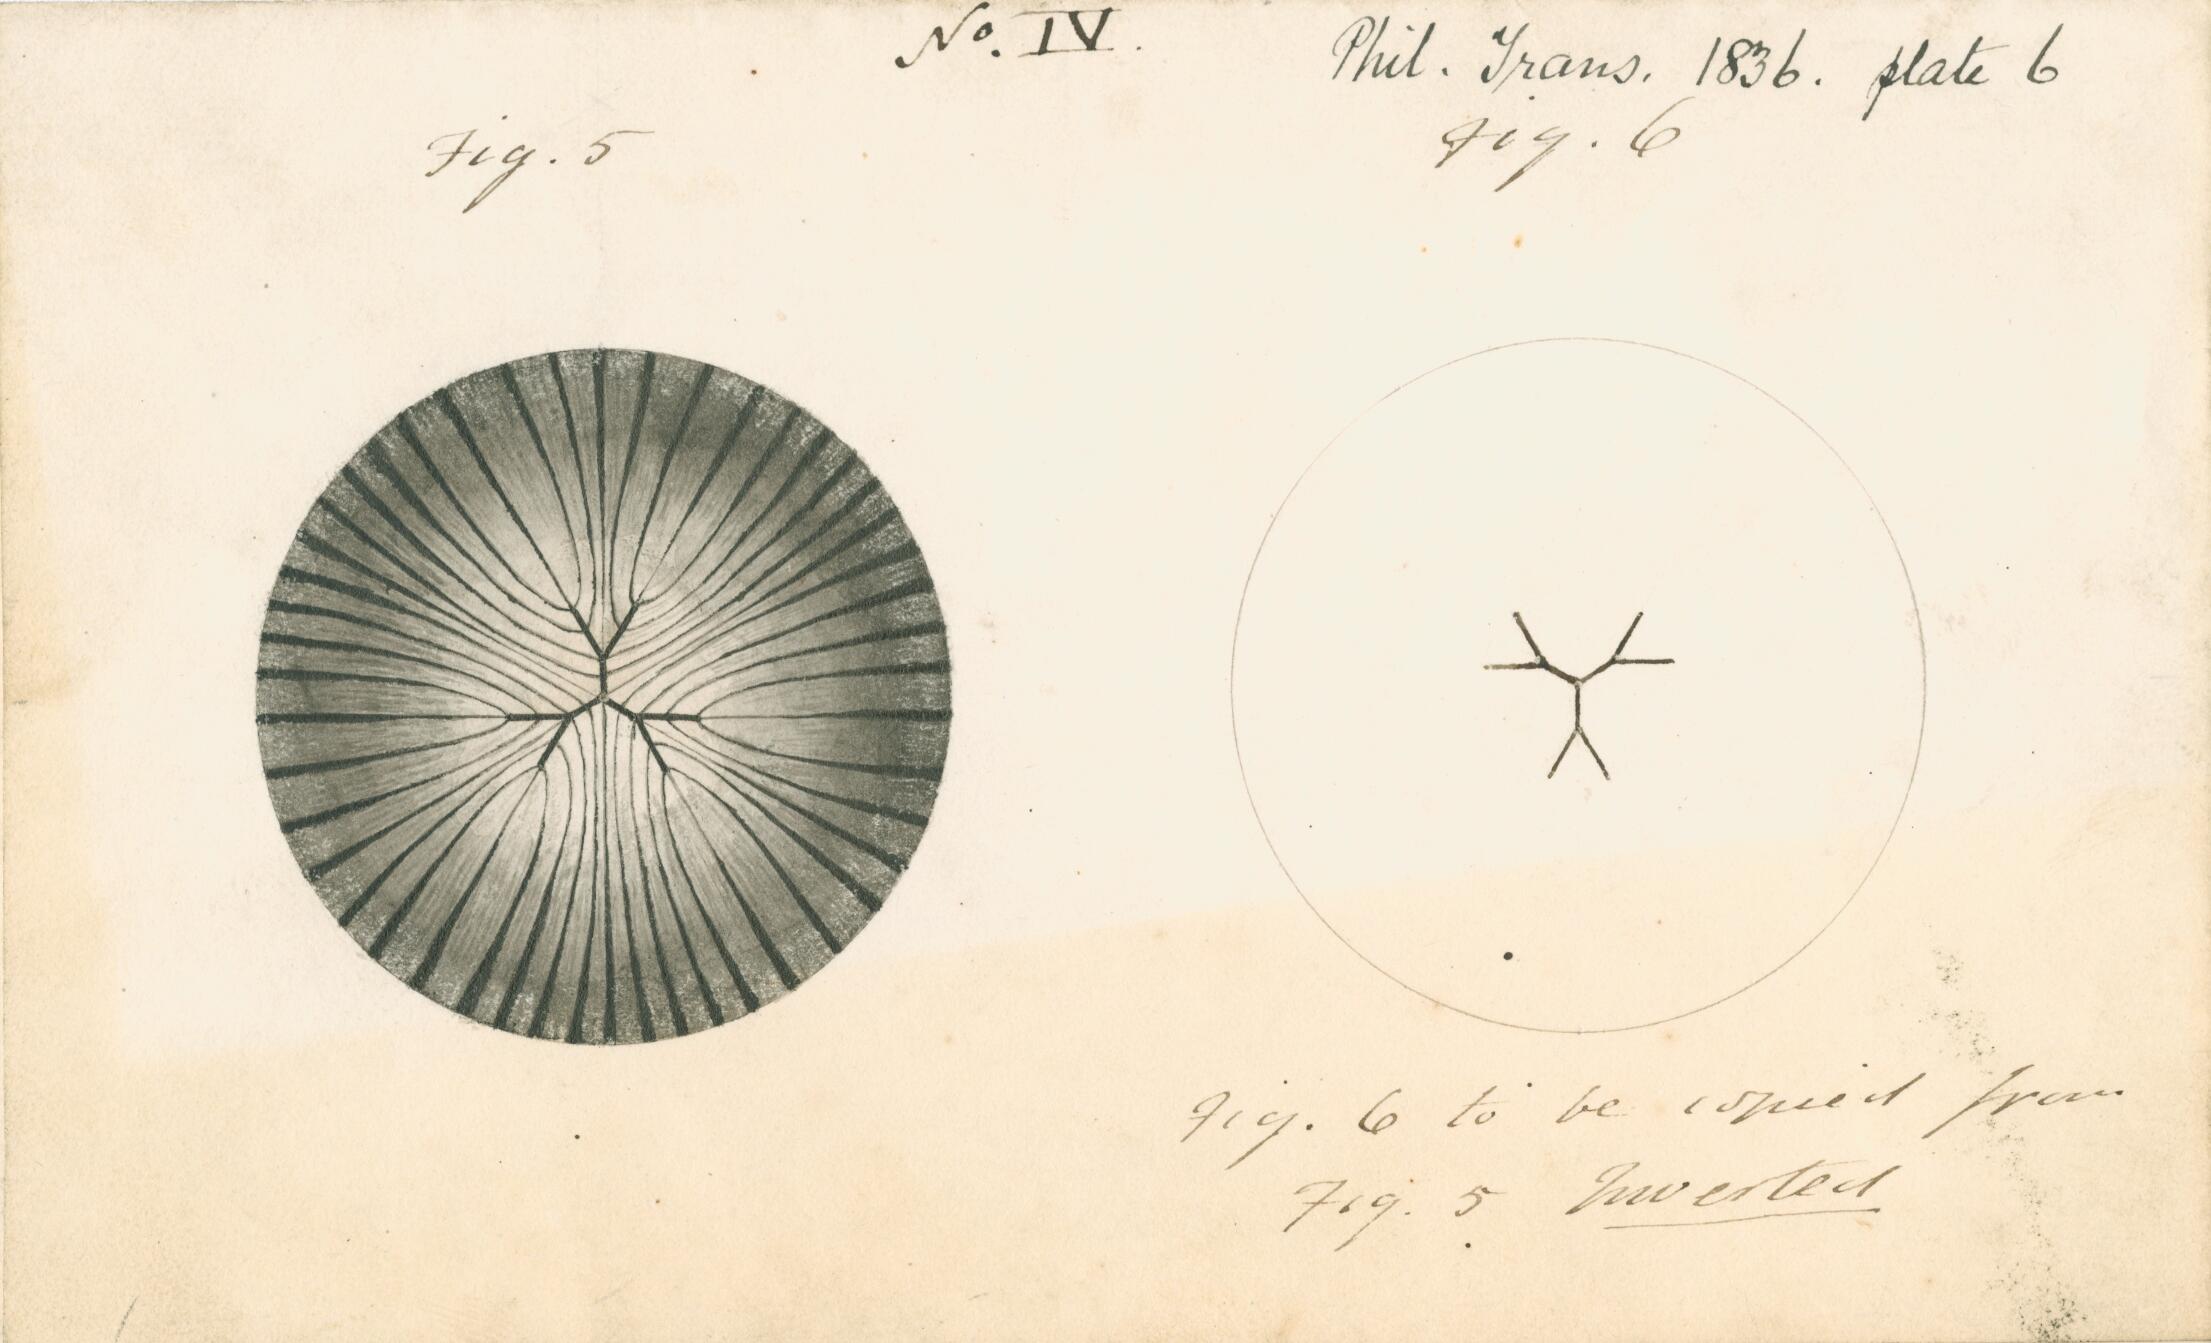 No. IV.
Phil. Trans. 1836. plate 6
Fig. 5
Fig. 6
Fig. 6 to be copied from
Fig. 5 Inverted